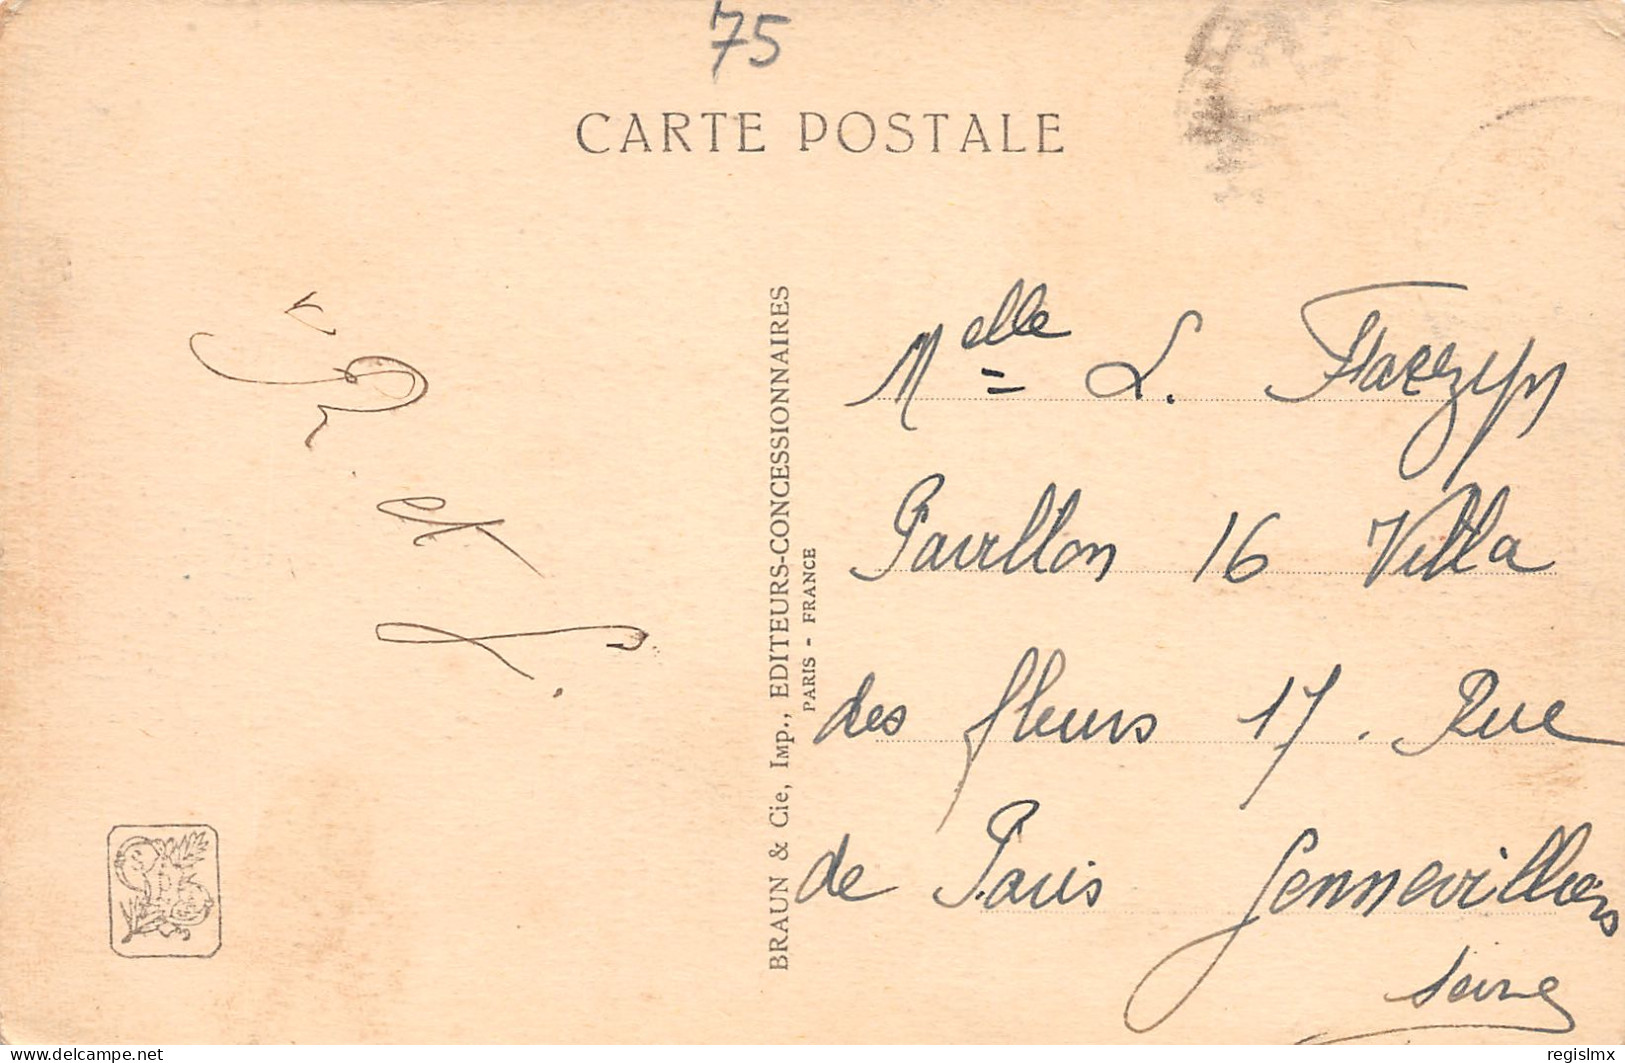 75
CARTE POSTALE
et
BRAUN & Cie, IMP., EDITEURS-CONCESSIONNAIRES
PARIS - FRANCE
Melle L.
Pavillon 16 Villa
des fleurs 17. Rue
de Paris Gennevilliers
Seine
delcampe.net
regislmx